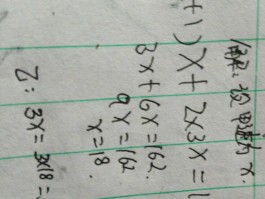 解:设甲为x.
+1) x+2×3x=1
3x+6x=162.
9x=162
x=18.
乙:3x=3×18=